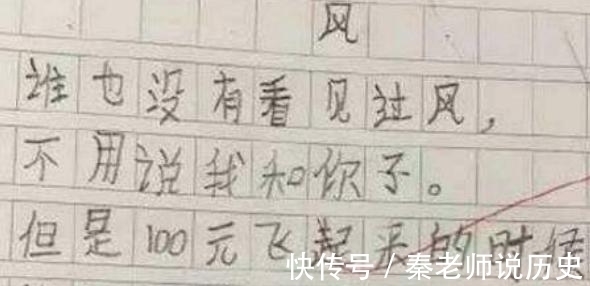 风
谁也没有看见过风，
不用说我和你了。
但是100元飞起来的时候
快传号/秦老师说历史